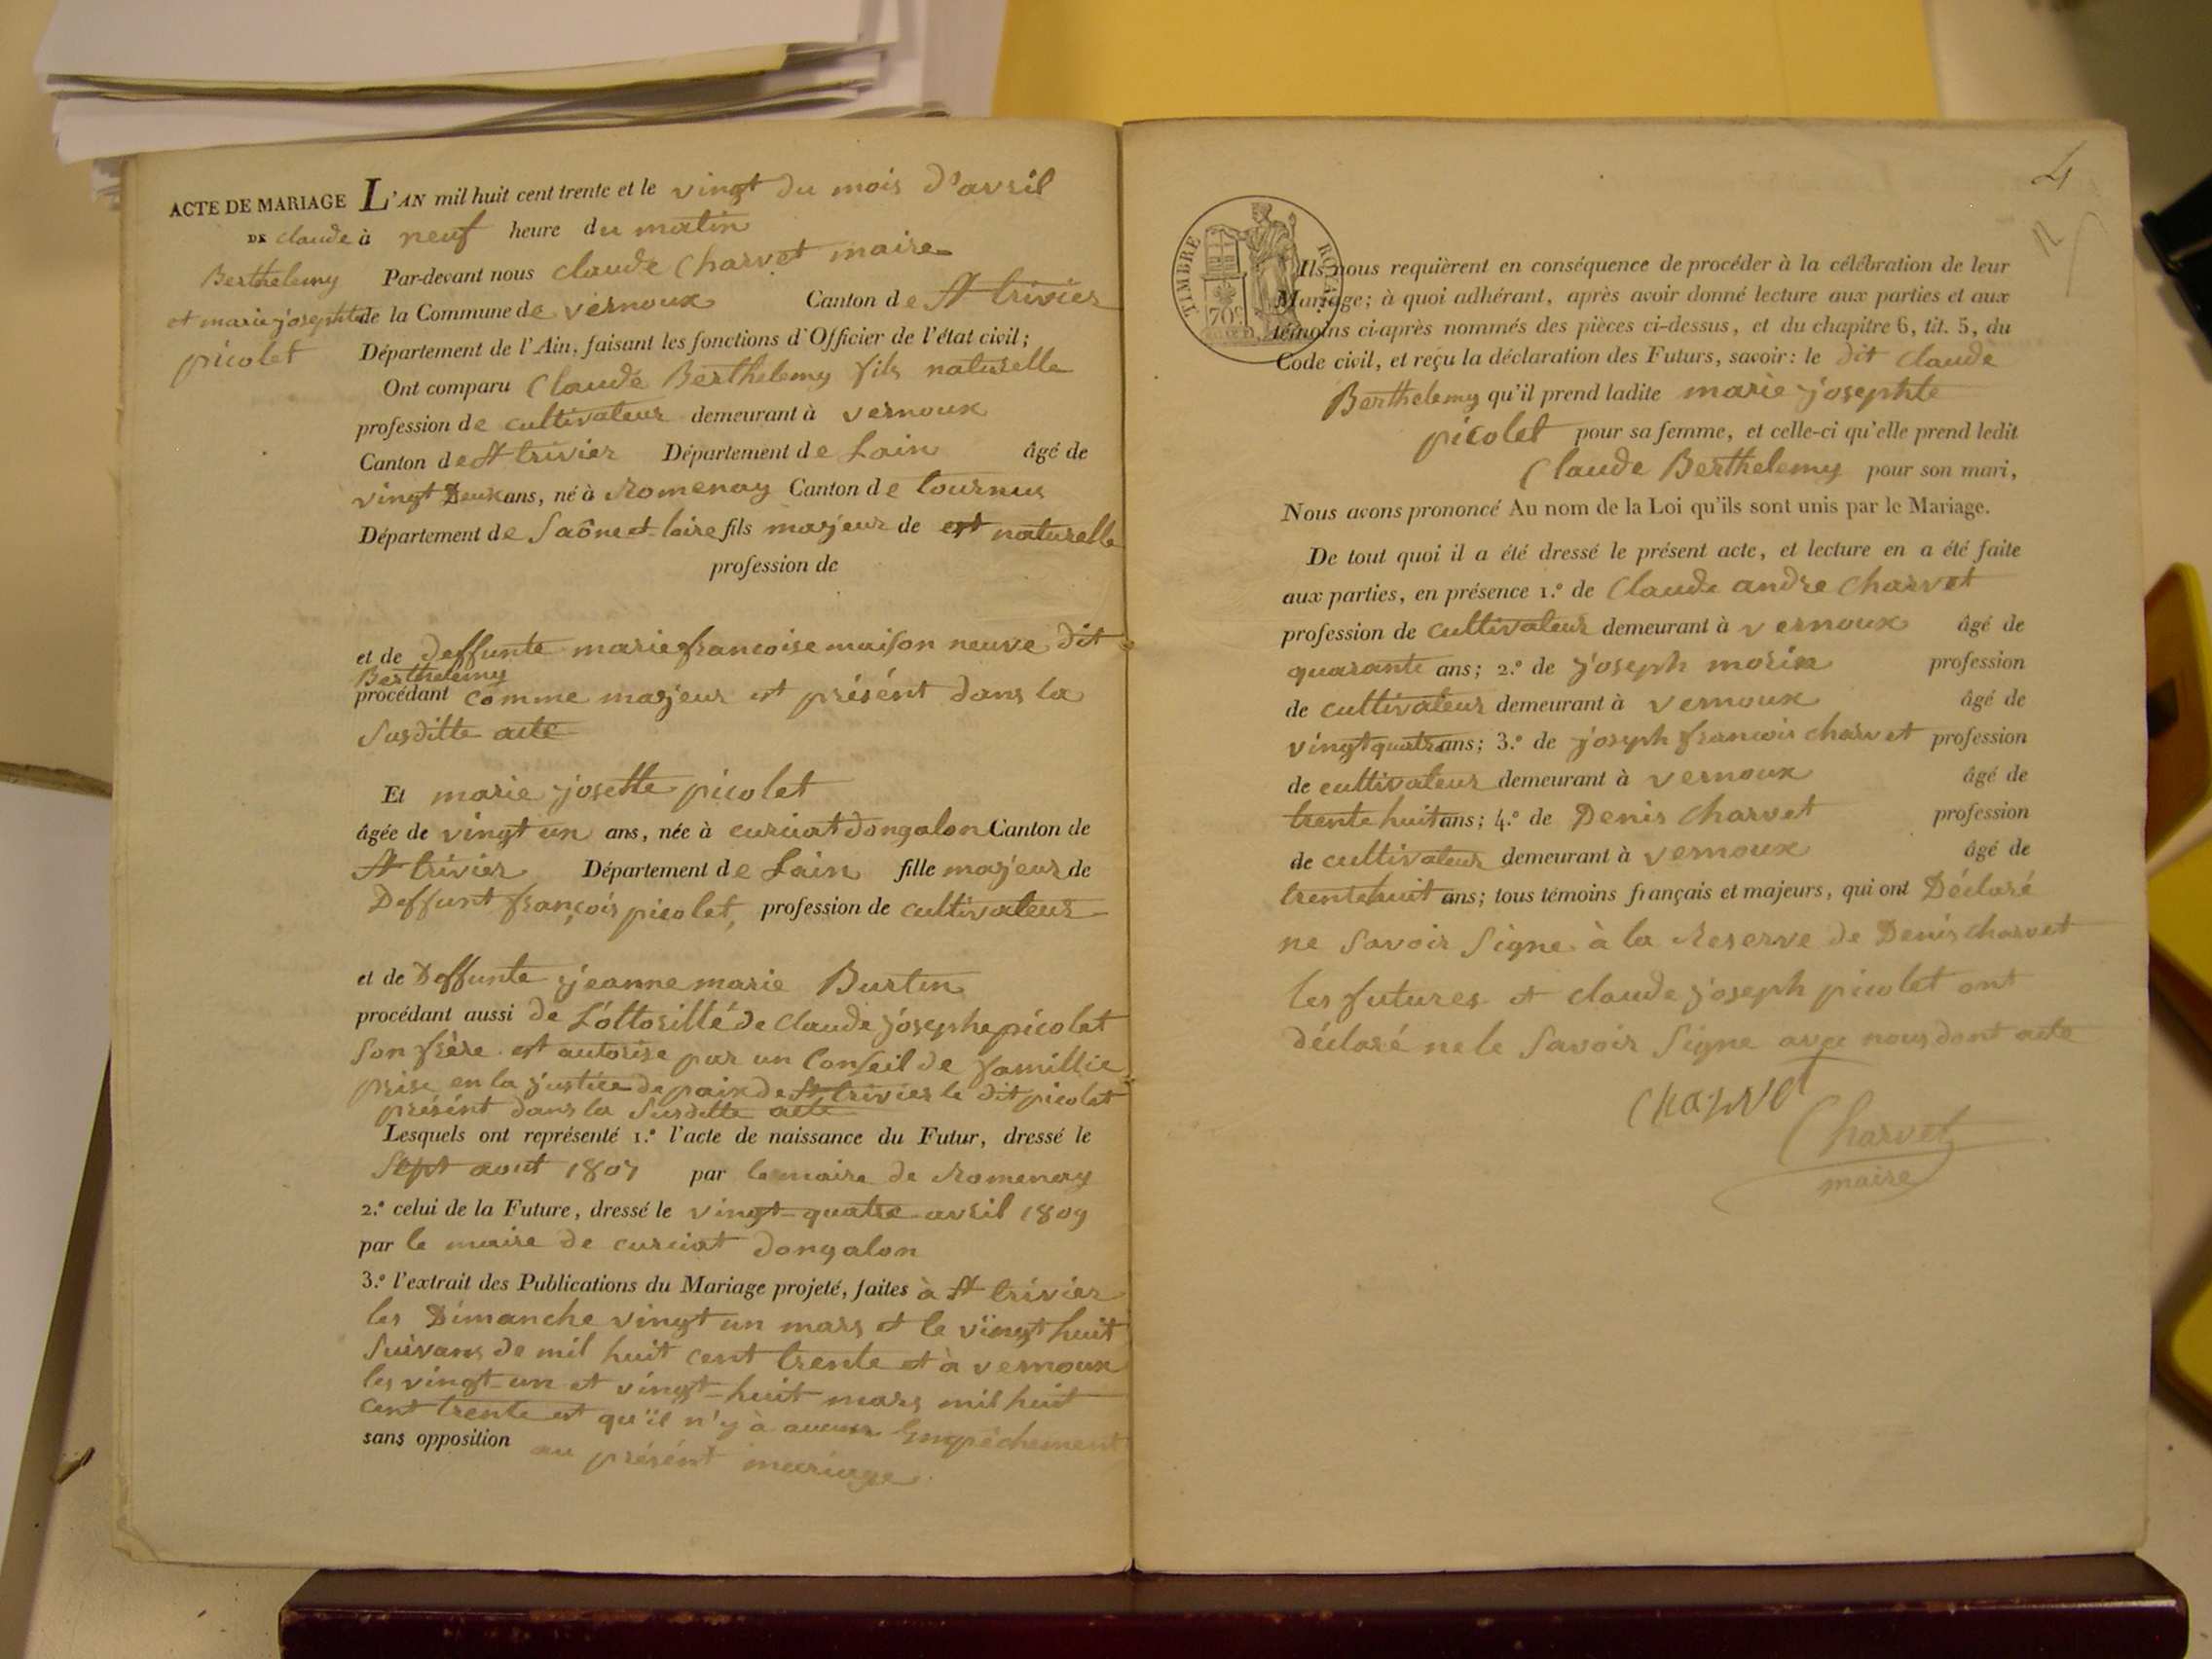 ACTE DE MARIAGE
DE claude
Berthelemy
et marie josephte
picolet
L'AN mil huit cent trente et le vingt du mois d'avril
à neuf heure du matin
Par-devant nous Claude Charvet maire
de la Commune de vernoux Canton de St trivier
Département de l'Ain, faisant les fonctions d'Officier de l'état civil;
Ont comparu Claude Berthelemy fils naturelle
profession de cultivateur demeurant à vernoux
Canton de St trivier Département de Lain âgé de
vingt Deux ans, né à Romenay Canton de tournus
Département de Saône et loire fils majeur de est naturelle
profession de
et de deffunte marie francoise maison neuve dit
Berthelemy
procédant comme majeur et présént dans la
Susditte acte
Et marie josette picolet
âgée de vingt un ans, née à curciat dongalon Canton de
St trivier Département de Lain fille majeur de
Deffunt françois picolet, profession de cultivateur
et de Deffunte jeanne marie Burtin
procédant aussi de L'ottorillé de Claude josephe picolet
Son frère et autorise par un Conseil de famillie
prise en la justice de paix de St trivier le dit picolet
présént dans la Susditte acte
Lesquels ont représenté 1.° l'acte de naissance du Futur, dressé le
Sept aout 1807 par le maire de Romenay
2.° celui de la Future, dressé le vingt-quatre avril 1809
par le maire de curciat dongalon
3.° l'extrait des Publications du Mariage projeté, faites à St trivier
les Dimanche vingt un mars et le vingt huit
Suivans de mil huit cent trente et à vernoux
les vingt-un et vingt-huit mars mil huit
cent trente et qu'il n'y à aucun Empêchement
sans opposition au présént mariage
4
TIMBRE ROYAL
70c
Ils nous requièrent en conséquence de procéder à la célébration de leur
Mariage; à quoi adhérant, après avoir donné lecture aux parties et aux
témoins ci-après nommés des pièces ci-dessus, et du chapitre 6, tit. 5, du
Code civil, et reçu la déclaration des Futurs, savoir: le dit Claude
Berthelemy qu'il prend ladite marie josephte
picolet pour sa femme, et celle-ci qu'elle prend ledit
Claude Berthelemy pour son mari,
Nous avons prononcé Au nom de la Loi qu'ils sont unis par le Mariage.
De tout quoi il a été dressé le présent acte, et lecture en a été faite
aux parties, en présence 1.° de Claude andre Charvet
profession de cultivateur demeurant à vernoux âgé de
quarante ans; 2.° de joseph morin profession
de cultivateur demeurant à vernoux âgé de
vingt quatre ans; 3.° de joseph francois charvet profession
de cultivateur demeurant à vernoux âgé de
trente huit ans; 4.° de Denis Charvet profession
de cultivateur demeurant à vernoux âgé de
trente huit ans; tous témoins français et majeurs, qui ont Déclaré
ne Savoir Signe à la Reserve de Denis charvet
les futures et claude joseph picolet ont
déclaré ne le Savoir Signe avec nous dont acte
Charvet
Charvet
maire